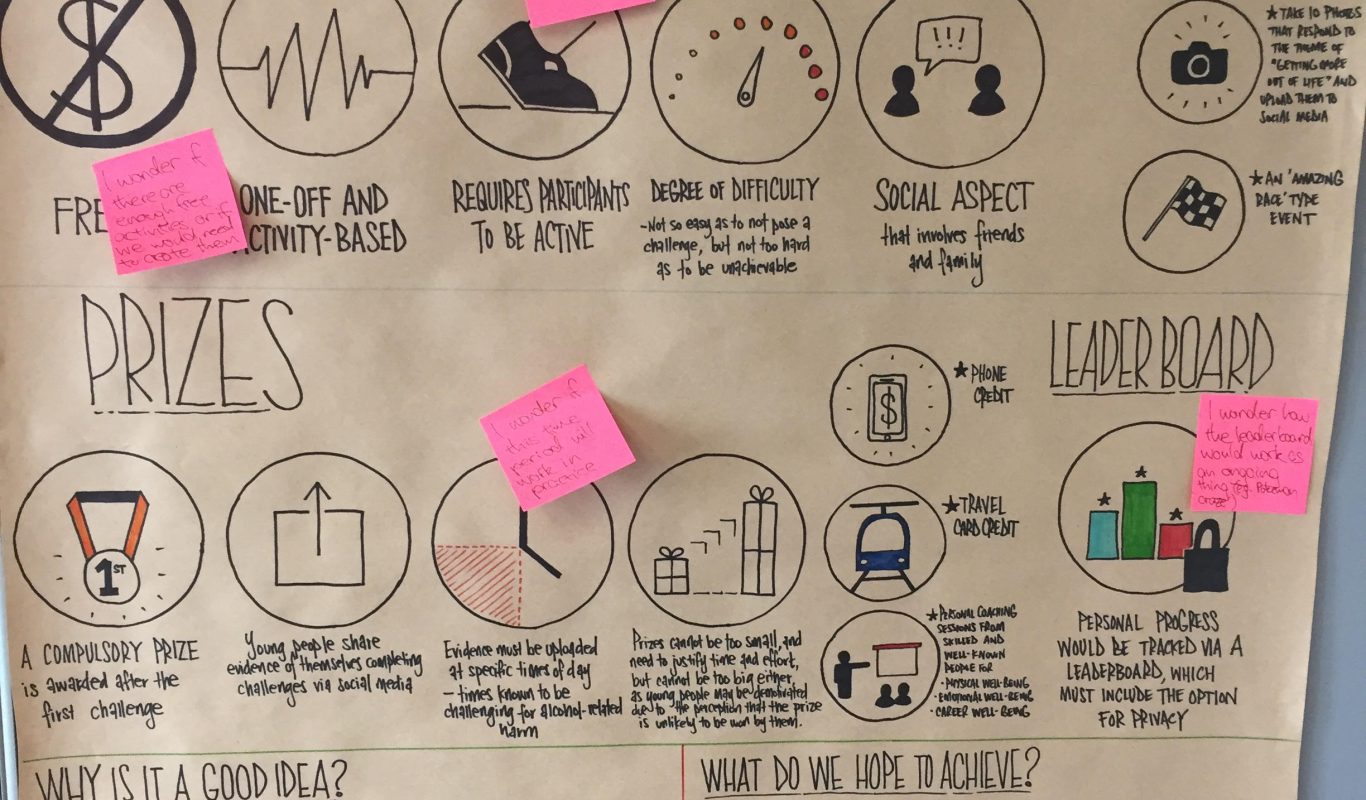 !!!
★ TAKE 10 PHOTOS
THAT RESPOND TO
THE THEME OF
"GETTING MORE
OUT OF LIFE" AND
UPLOAD THEM TO
SOCIAL MEDIA
★ AN 'AMAZING
RACE' TYPE
EVENT
FRE
I wonder if
there are
enough free
activities or if
we would need
to create them
ONE-OFF AND
CTIVITY-BASED
REQUIRES PARTICIPANTS
TO BE ACTIVE
DEGREE OF DIFFICULTY
- Not so easy as to not pose a
challenge, but not too hard
as to be unachievable
SOCIAL ASPECT
that involves friends
and family
PRIZES
1ST
A COMPULSORY PRIZE
is awarded after the
first challenge
Young people share
evidence of themselves completing
challenges via social media
I wonder if
this time
period will
work in
practice
Evidence must be uploaded
at specific times of day
- times known to be
challenging for alcohol-related
harm
Prizes cannot be too small, and
need to justify time and effort,
but cannot be too big either,
as young people may be demotivated
due to the perception that the prize
is unlikely to be won by them.
$
★ PHONE
CREDIT
★ TRAVEL
CARD CREDIT
★ PERSONAL COACHING
SESSIONS FROM
SKILLED AND
WELL-KNOWN
PEOPLE FOR
• PHYSICAL WELL-BEING
• EMOTIONAL WELL-BEING
• CAREER WELL-BEING
LEADERBOARD
I wonder how
the leaderboard
would work as
an ongoing
thing (eg. Pokemon
craze)
PERSONAL PROGRESS
WOULD BE TRACKED VIA A
LEADERBOARD, WHICH
MUST INCLUDE THE OPTION
FOR PRIVACY
WHY IS IT A GOOD IDEA?
WHAT DO WE HOPE TO ACHIEVE?